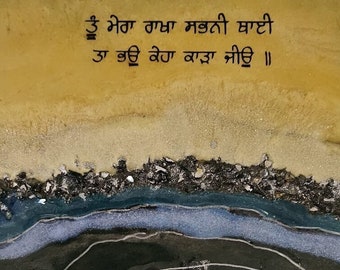 ਤੂੰ ਮੇਰਾ ਰਾਖਾ ਸਭਨੀ ਥਾਈ
ਤਾ ਭਉ ਕੇਹਾ ਕਾੜਾ ਜੀਉ ॥